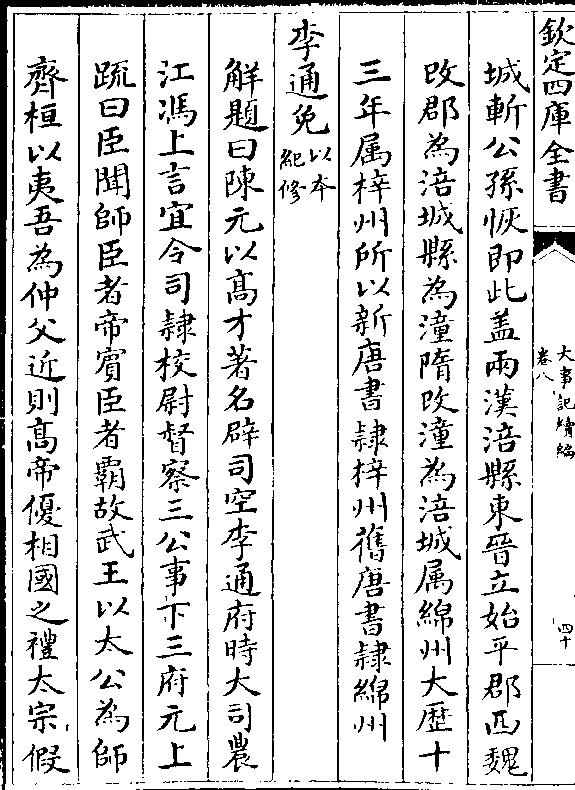 欽定四庫全書
大事記續編
卷八
四十
城斬公孫恢即此蓋兩漢涪縣東晉立始平郡西魏
改郡為涪城縣為潼隋改潼為涪城属綿州大歷十
三年属梓州所以新唐書隸梓州舊唐書隸綿州
李通免以本紀修
解題曰陳元以髙才著名辟司空李通府時大司農
江馮上言宜令司隸校尉督察三公事下三府元上
疏曰臣聞師臣者帝賔臣者霸故武王以太公為師
齊桓以夷吾為仲父近則髙帝優相國之禮太宗假